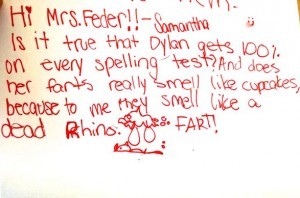 Hi Mrs.Feder!!-Samantha
Is it true that Dylan gets 100%
on every spelling test?And does
her farts really smell like cupcakes,
because to me they smell like a
dead Rhino. FART!